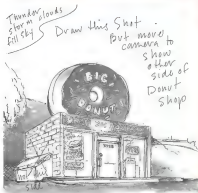 Thunder
storm clouds
fill sky
Draw this Shot.
But move
camera to
show
other
side of
Donut
shop
BIG
DONUT